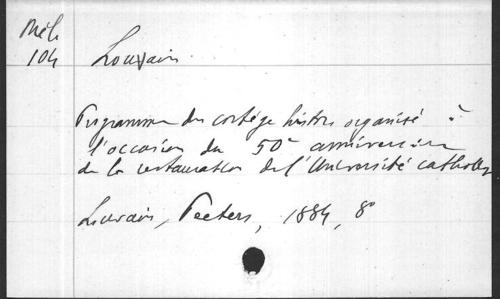 Mél.
104
Louvain
Programme du cortège histor. organisé à
l'occasion du 50e anniversaire
de la restauration de l'Université catholiq
Louvain, Peeters, 1884, 8°